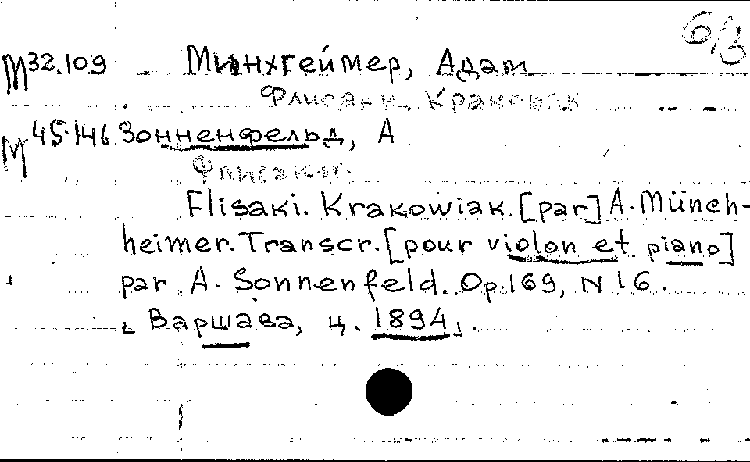 6/3
М 32.109 Минхгеймер, Адам
Флисаки. Краковяк
М 45.146 Зонненфельд, А
Флисаки.
Flisaki. Krakowiak. [par] A. Münch-
heimer. Transcr. [pour violon et piano]
par A. Sonnenfeld. Op. 169, N 16.
[Варшава, ц. 1894].